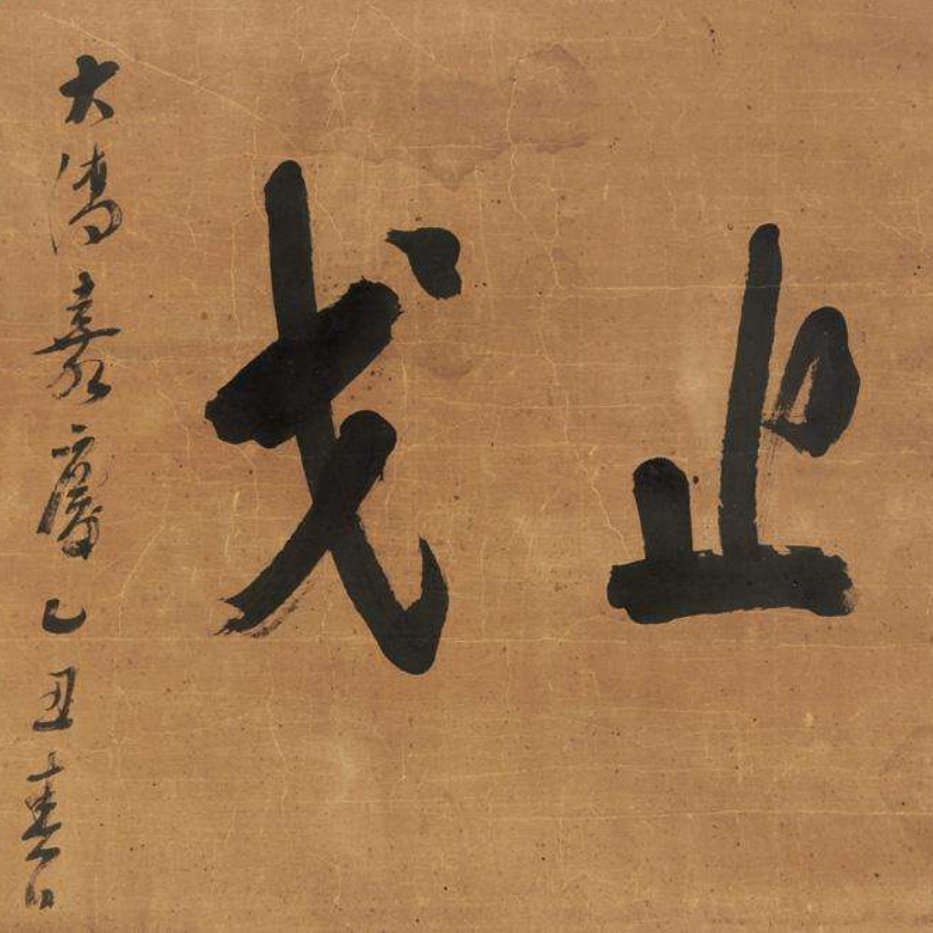 止戈
大清嘉慶乙丑春日